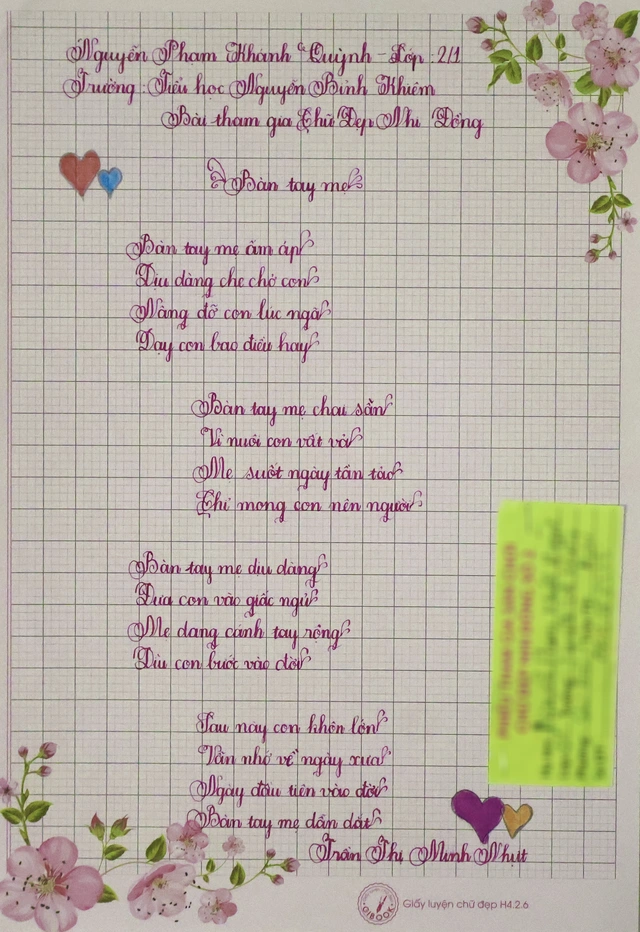 Nguyễn Phạm Khánh Quỳnh - Lớp : 2/1
Trường : Tiểu học Nguyễn Bỉnh Khiêm
Bài tham gia Chữ Đẹp Nhi Đồng
Bàn tay mẹ
Bàn tay mẹ ấm áp
Dịu dàng che chở con
Nâng đỡ con lúc ngã
Dạy con bao điều hay
Bàn tay mẹ chai sần
Vì nuôi con vất vả
Mẹ suốt ngày tần tảo
Chỉ mong con nên người
Bàn tay mẹ dịu dàng
Đưa con vào giấc ngủ
Mẹ dang cánh tay rộng
Dìu con bước vào đời
Sau này con khôn lớn
Vẫn nhớ về ngày xưa
Ngày đầu tiên vào đời
Bàn tay mẹ dẫn dắt
Trần Thị Minh Nhựt
Giấy luyện chữ đẹp H4.2.6